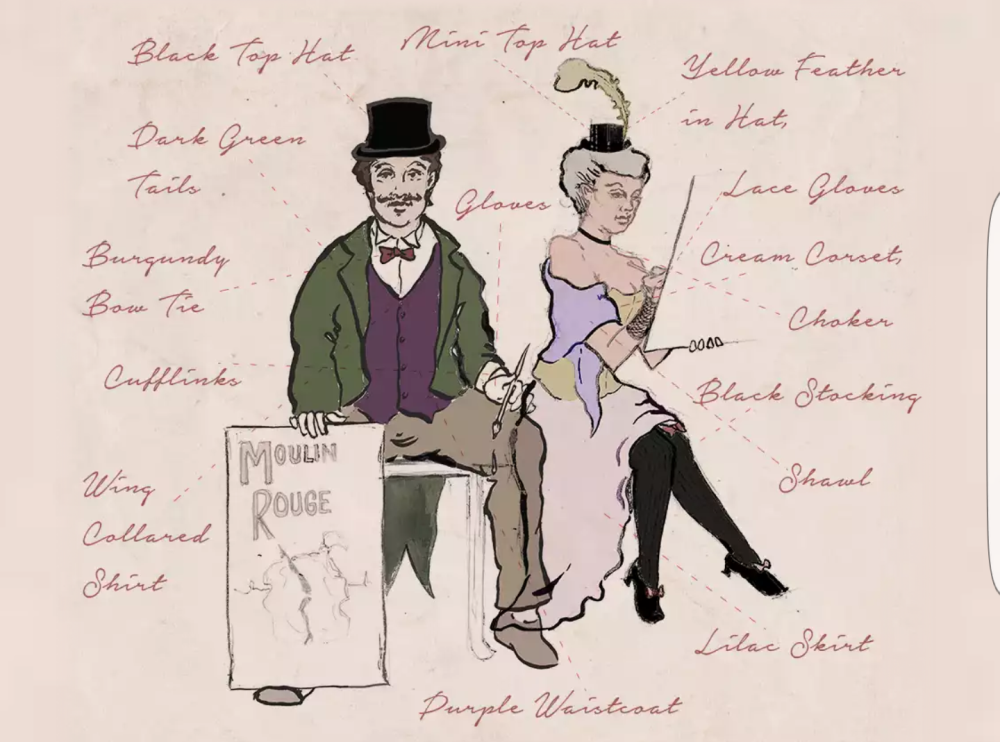 Black Top Hat
Mini Top Hat
Yellow Feather
in Hat,
Dark Green
Tails
Gloves
Lace Gloves
Burgundy
Bow Tie
Cream Corset,
Choker
Cufflinks
Black Stocking
Wing
Collared
Shirt
Shawl
MOULIN
ROUGE
Lilac Skirt
Purple Waistcoat